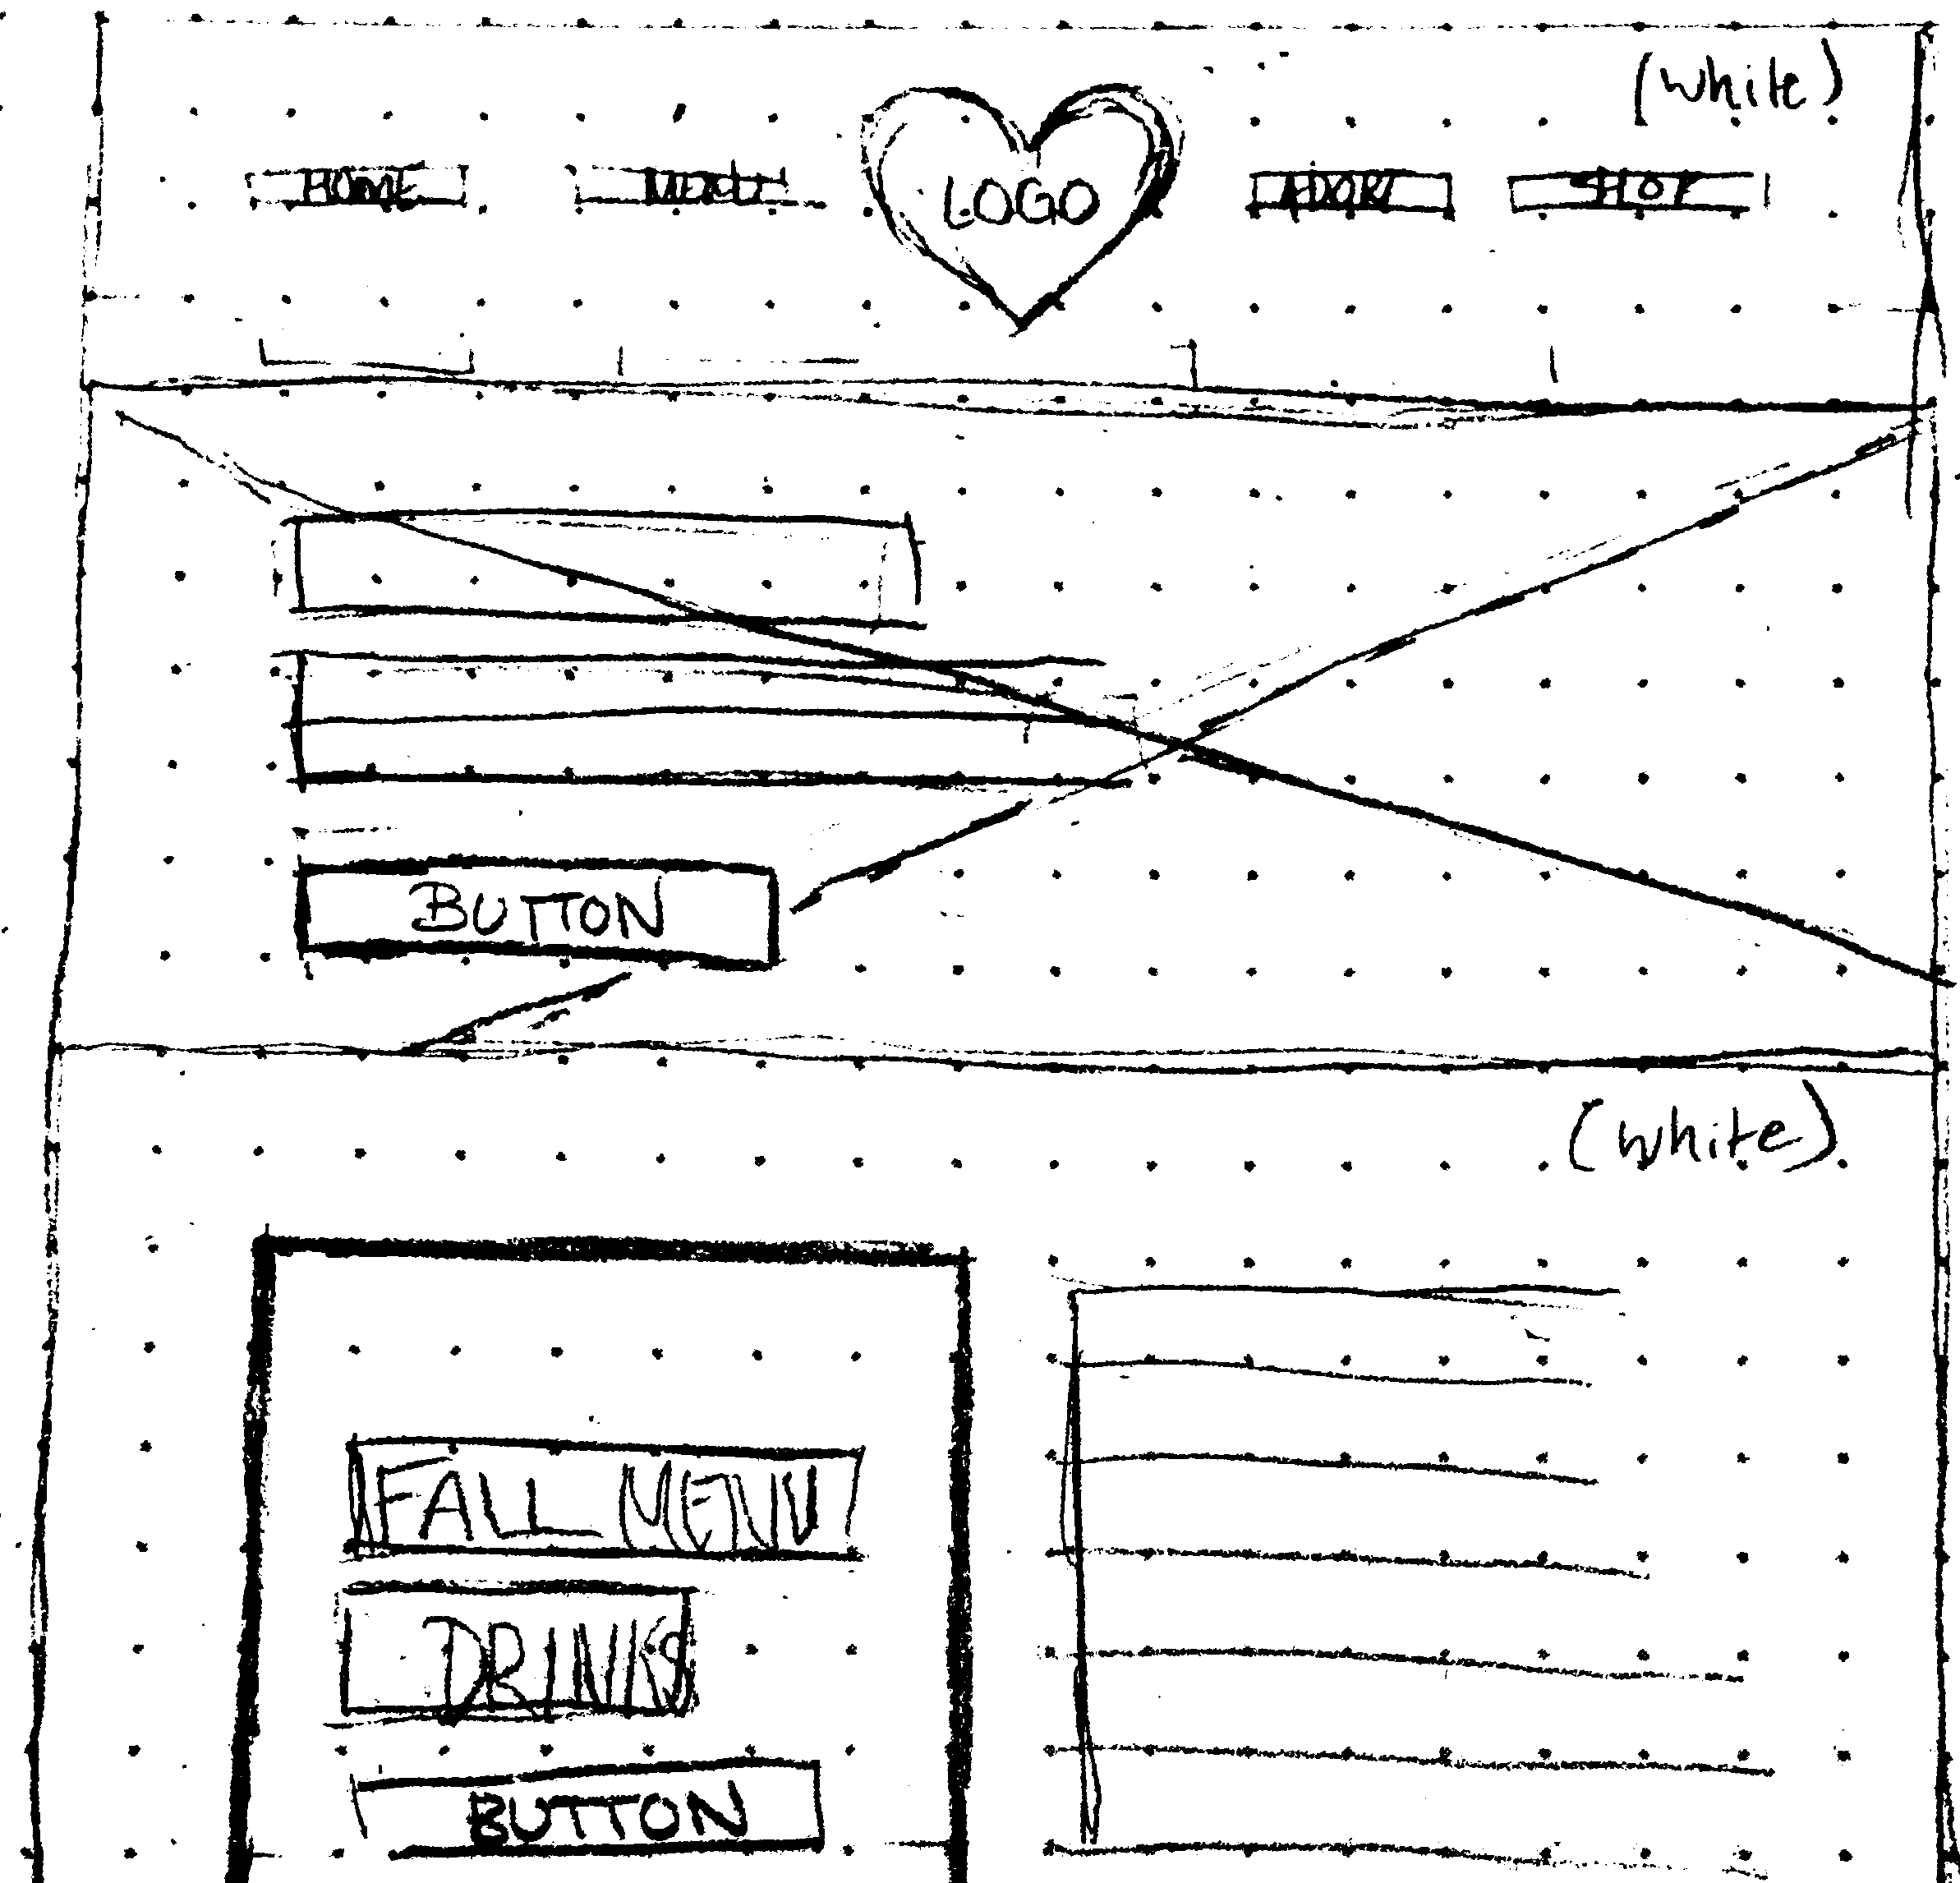 (white)
HOME MENU LOGO ADOPT SHOP
BUTTON
(white)
FALL MENU
DRINKS
BUTTON